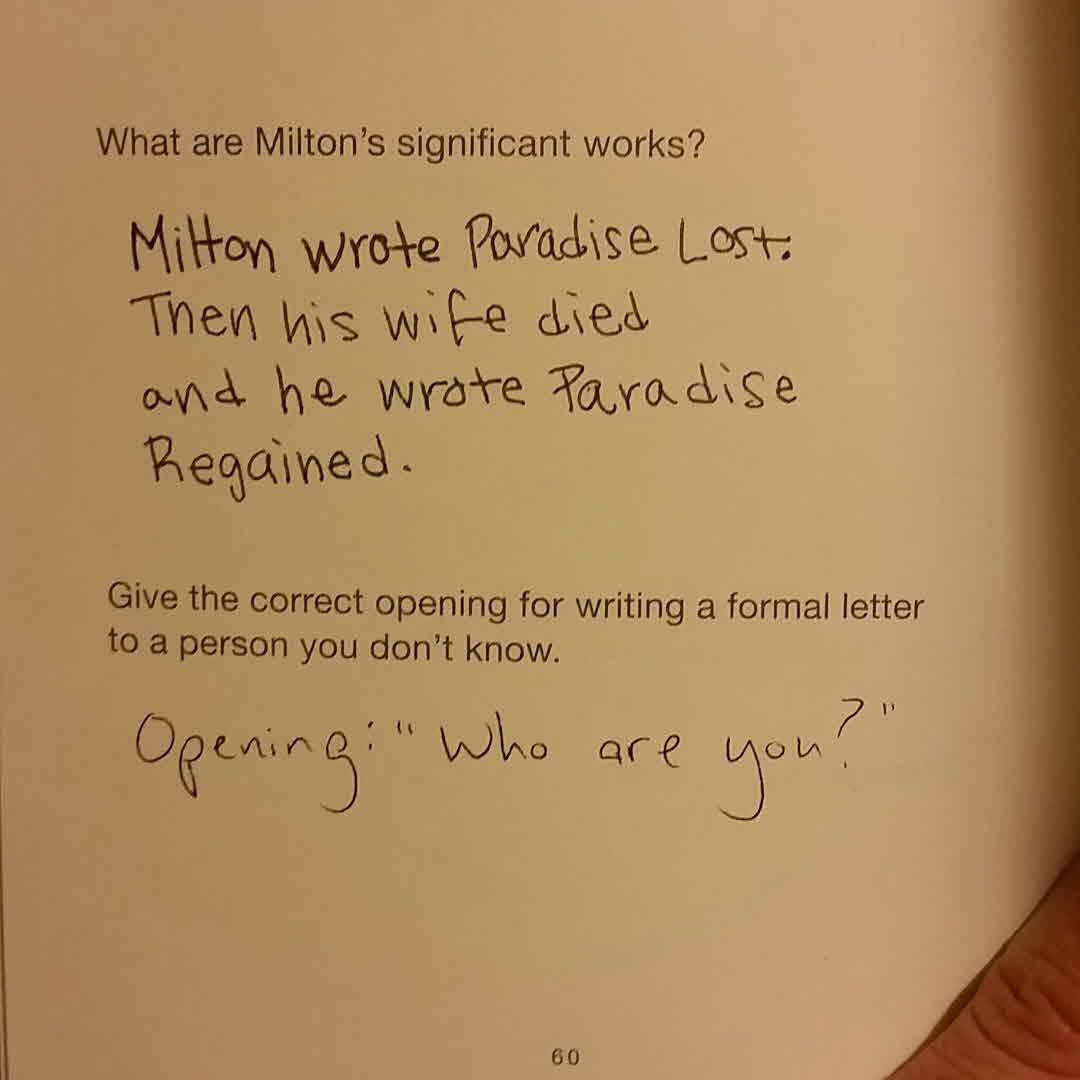 What are Milton's significant works?
Milton wrote Paradise Lost.
Then his wife died
and he wrote Paradise
Regained.
Give the correct opening for writing a formal letter
to a person you don't know.
Opening: "Who are you?"
60